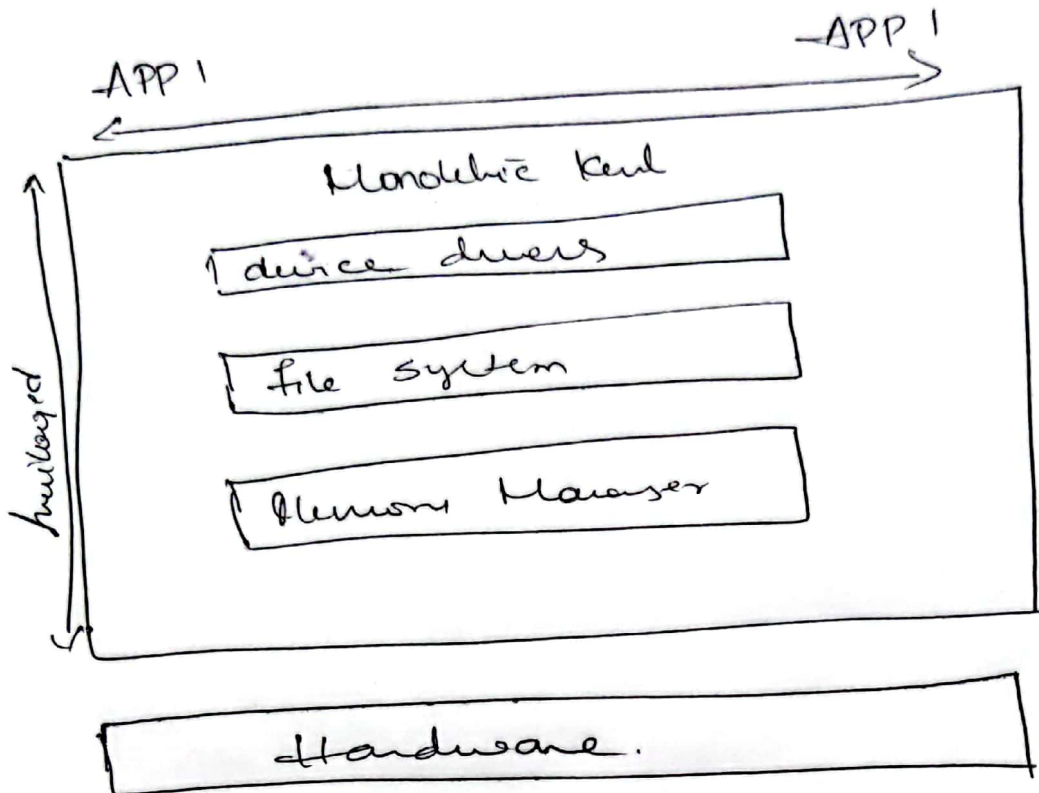 APP 1
APP 1
Monolithic Kernel
device drivers
file system
Memory Manager
privileged
Hardware.